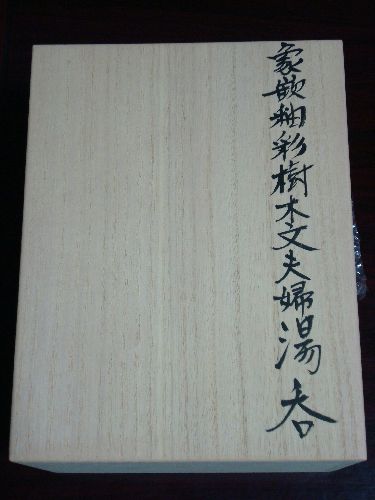 象嵌釉彩樹木文夫婦湯呑